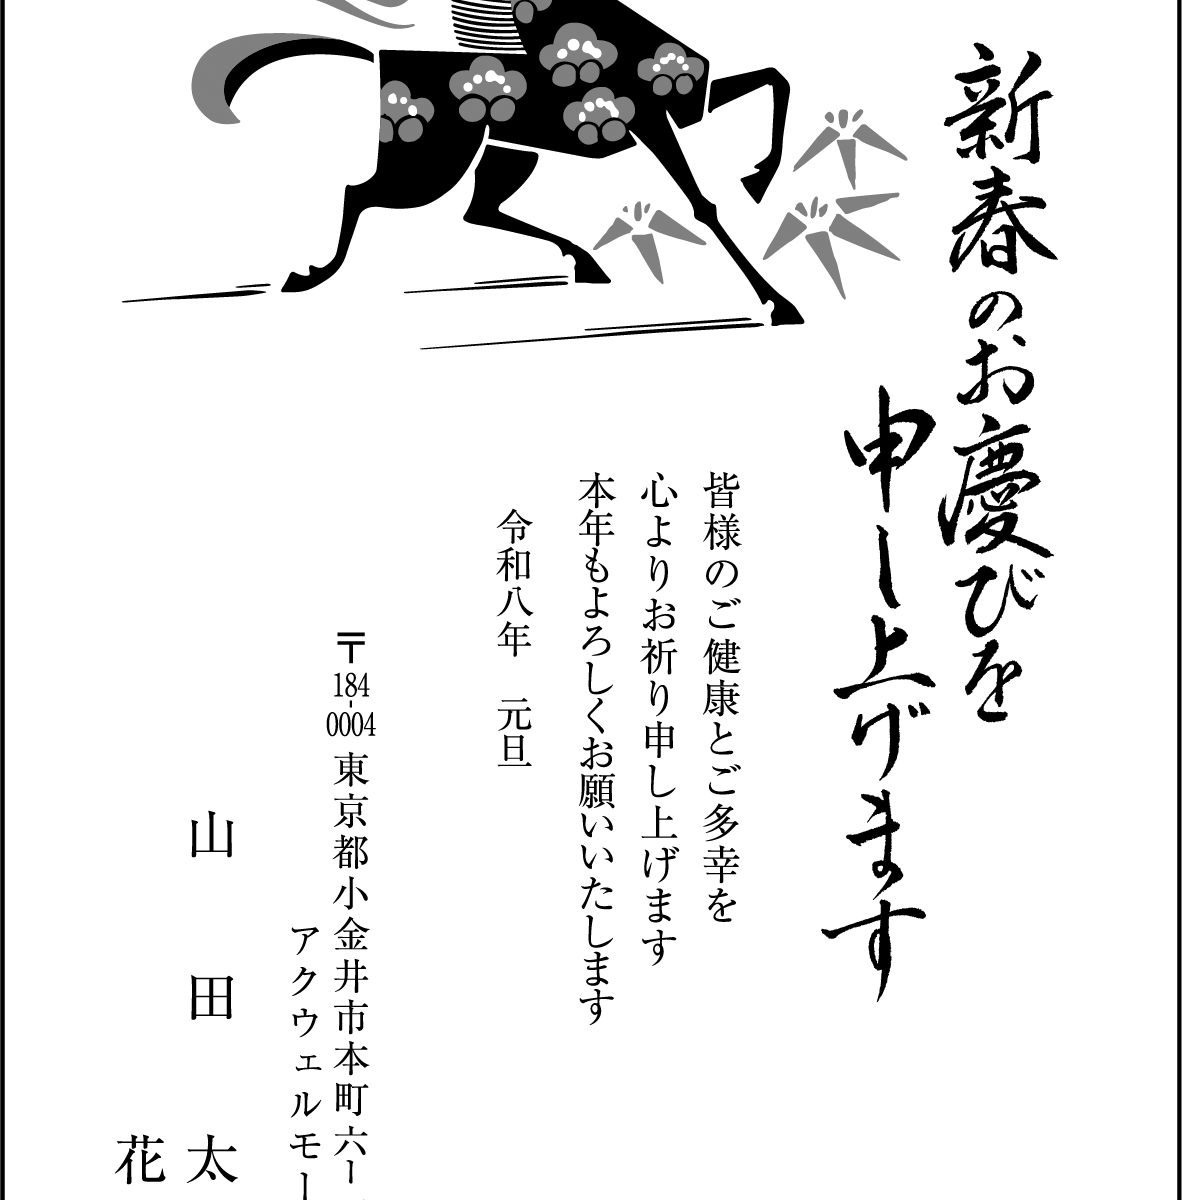 新春のお慶びを
申し上げます
皆様のご健康とご多幸を
心よりお祈り申し上げます
本年もよろしくお願いいたします
令和八年　元旦
〒184-0004 東京都小金井市本町六ー
アクウェルモー
山田　太
花